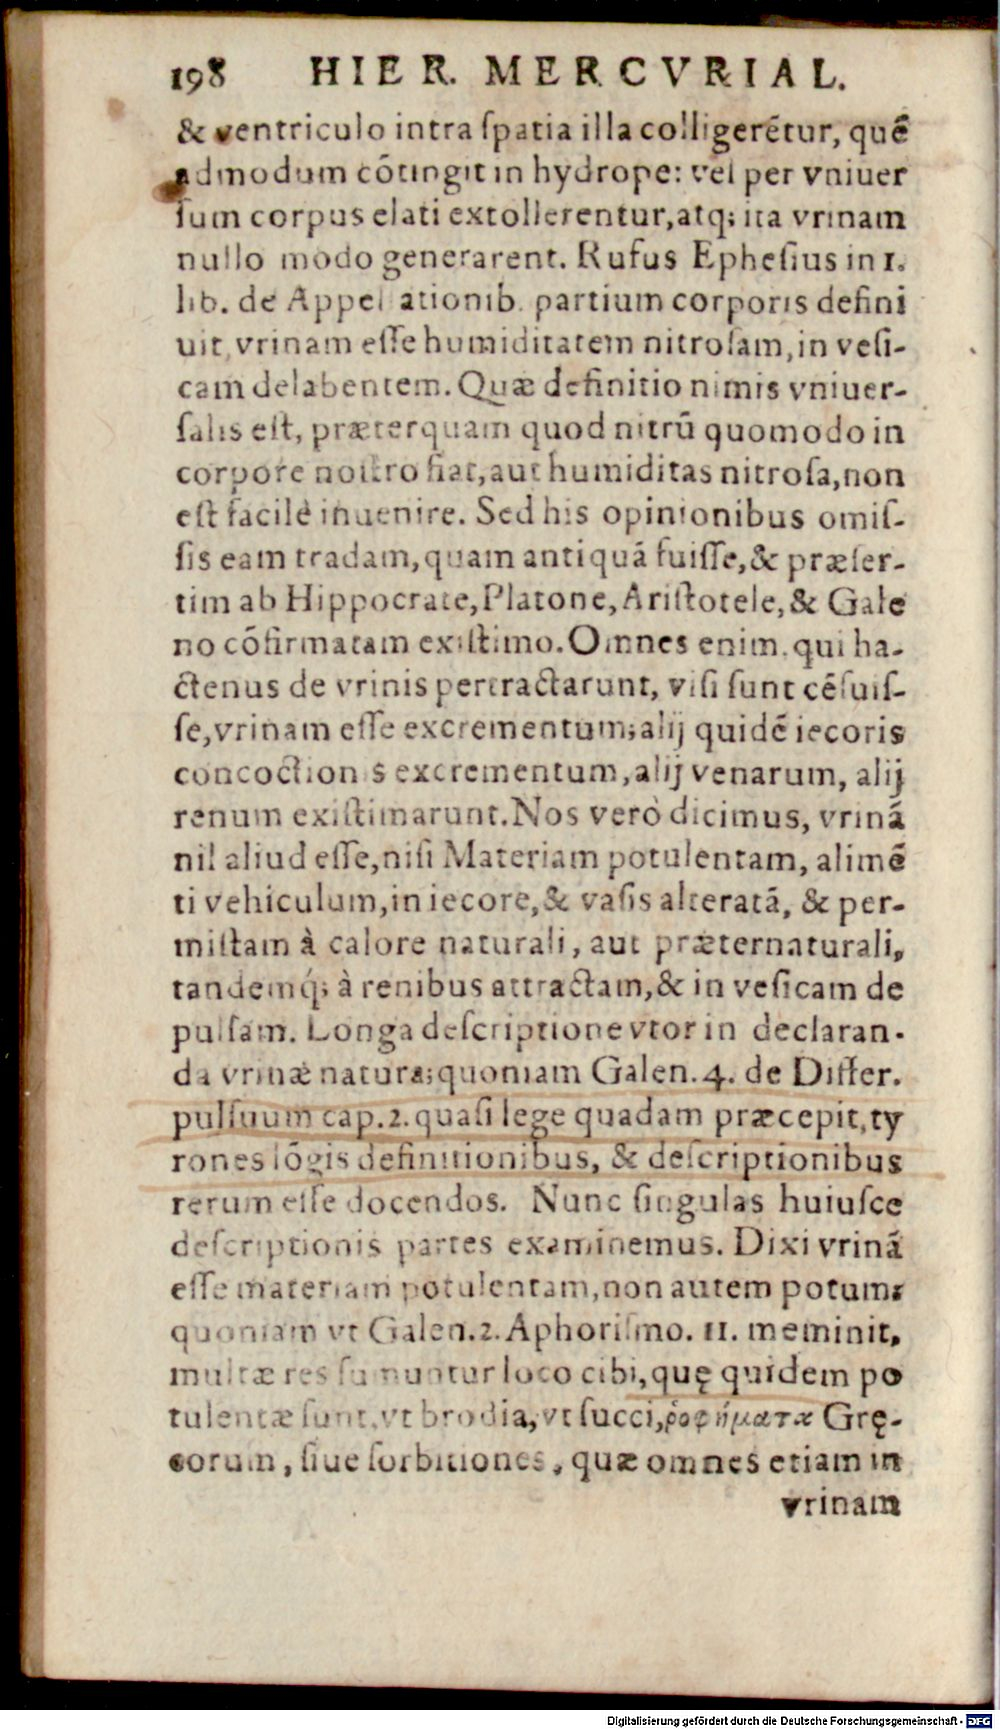 198 HIER. MERCVRIAL.
& ventriculo intra ſpatia illa colligerẽtur, quẽ
admodum cõtingit in hydrope: vel per vniuer
ſum corpus elati extollerentur, atq; ita vrinam
nullo modo generarent. Rufus Epheſius in 1.
lib. de Appellationib. partium corporis defini
uit, vrinam eſſe humiditatem nitroſam, in veſi-
cam delabentem. Quæ definitio nimis vniuer-
ſalis eſt, præterquam quod nitrũ quomodo in
corpore noſtro fiat, aut humiditas nitroſa, non
eſt facilè inuenire. Sed his opinionibus omiſ-
ſis eam tradam, quam antiquã fuiſſe, & præſer-
tim ab Hippocrate, Platone, Ariſtotele, & Gale
no cõfirmatam exiſtimo. Omnes enim, qui ha-
ctenus de vrinis pertractarunt, viſi ſunt cẽſuiſ-
ſe, vrinam eſſe excrementum; alij quidẽ iecoris
concoctionis excrementum, alij venarum, alij
renum exiſtimarunt. Nos verò dicimus, vrinã
nil aliud eſſe, niſi Materiam potulentam, alimẽ
ti vehiculum, in iecore, & vaſis alteratã, & per-
miſtam à calore naturali, aut præternaturali,
tandemq́; à renibus attractam, & in veſicam de
pulſam. Longa deſcriptione vtor in declaran-
da vrinæ natura; quoniam Galen. 4. de Differ.
pulſuum cap. 2. quaſi lege quadam præcepit, ty
rones lõgis definitionibus, & deſcriptionibus
rerum eſſe docendos. Nunc ſingulas huiuſce
deſcriptionis partes examinemus. Dixi vrinã
eſſe materiam potulentam, non autem potum;
quoniam vt Galen. 2. Aphoriſmo. 11. meminit,
multæ res ſumuntur loco cibi, quę quidem po
tulentæ ſunt, vt brodia, vt ſucci, ῥοφήματα Grę-
corum, ſiue ſorbitiones, quæ omnes etiam in
vrinam
Digitalisierung gefördert durch die Deutsche Forschungsgemeinschaft - DFG